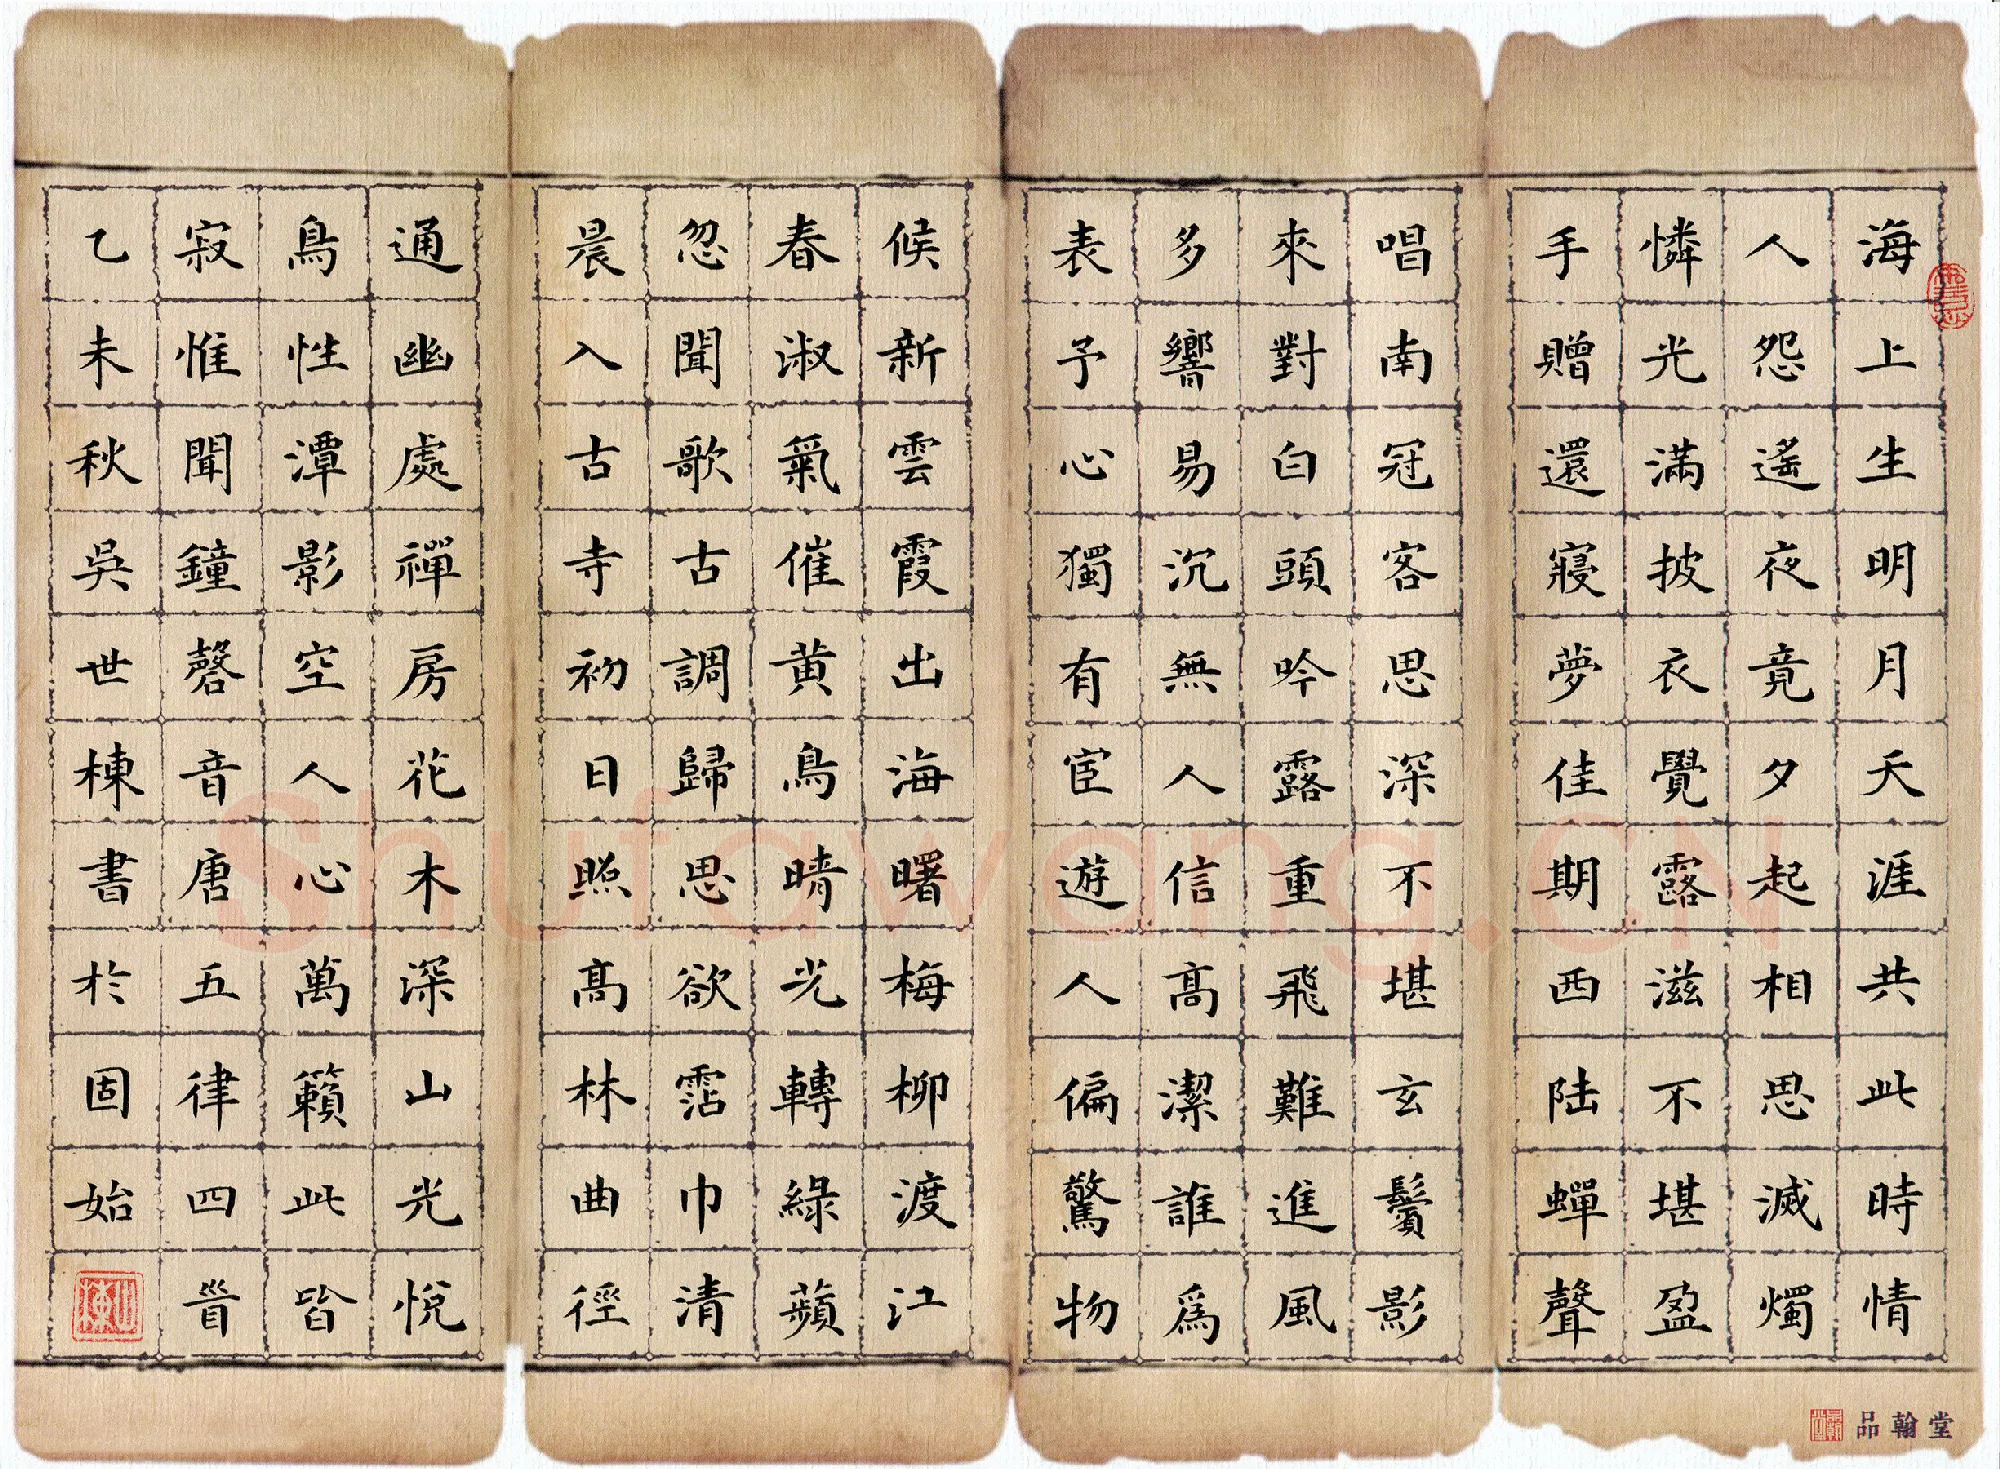 海上生明月天涯共此時情
人怨遙夜竟夕起相思滅燭
憐光滿披衣覺露滋不堪盈
手贈還寢夢佳期西陸蟬聲
唱南冠客思深不堪玄鬢影
來對白頭吟露重飛難進風
多響易沉無人信髙潔誰爲
表予心獨有宦遊人偏驚物
候新雲霞出海曙梅柳渡江
春淑氣催黄鳥晴光轉綠蘋
忽聞歌古調歸思欲霑巾清
晨入古寺初日照髙林曲徑
通幽處禪房花木深山光悅
鳥性潭影空人心萬籟此皆
寂惟聞鐘磬音唐五律四首
乙未秋吳世棟書於固始
品翰堂
Shufawang.CN